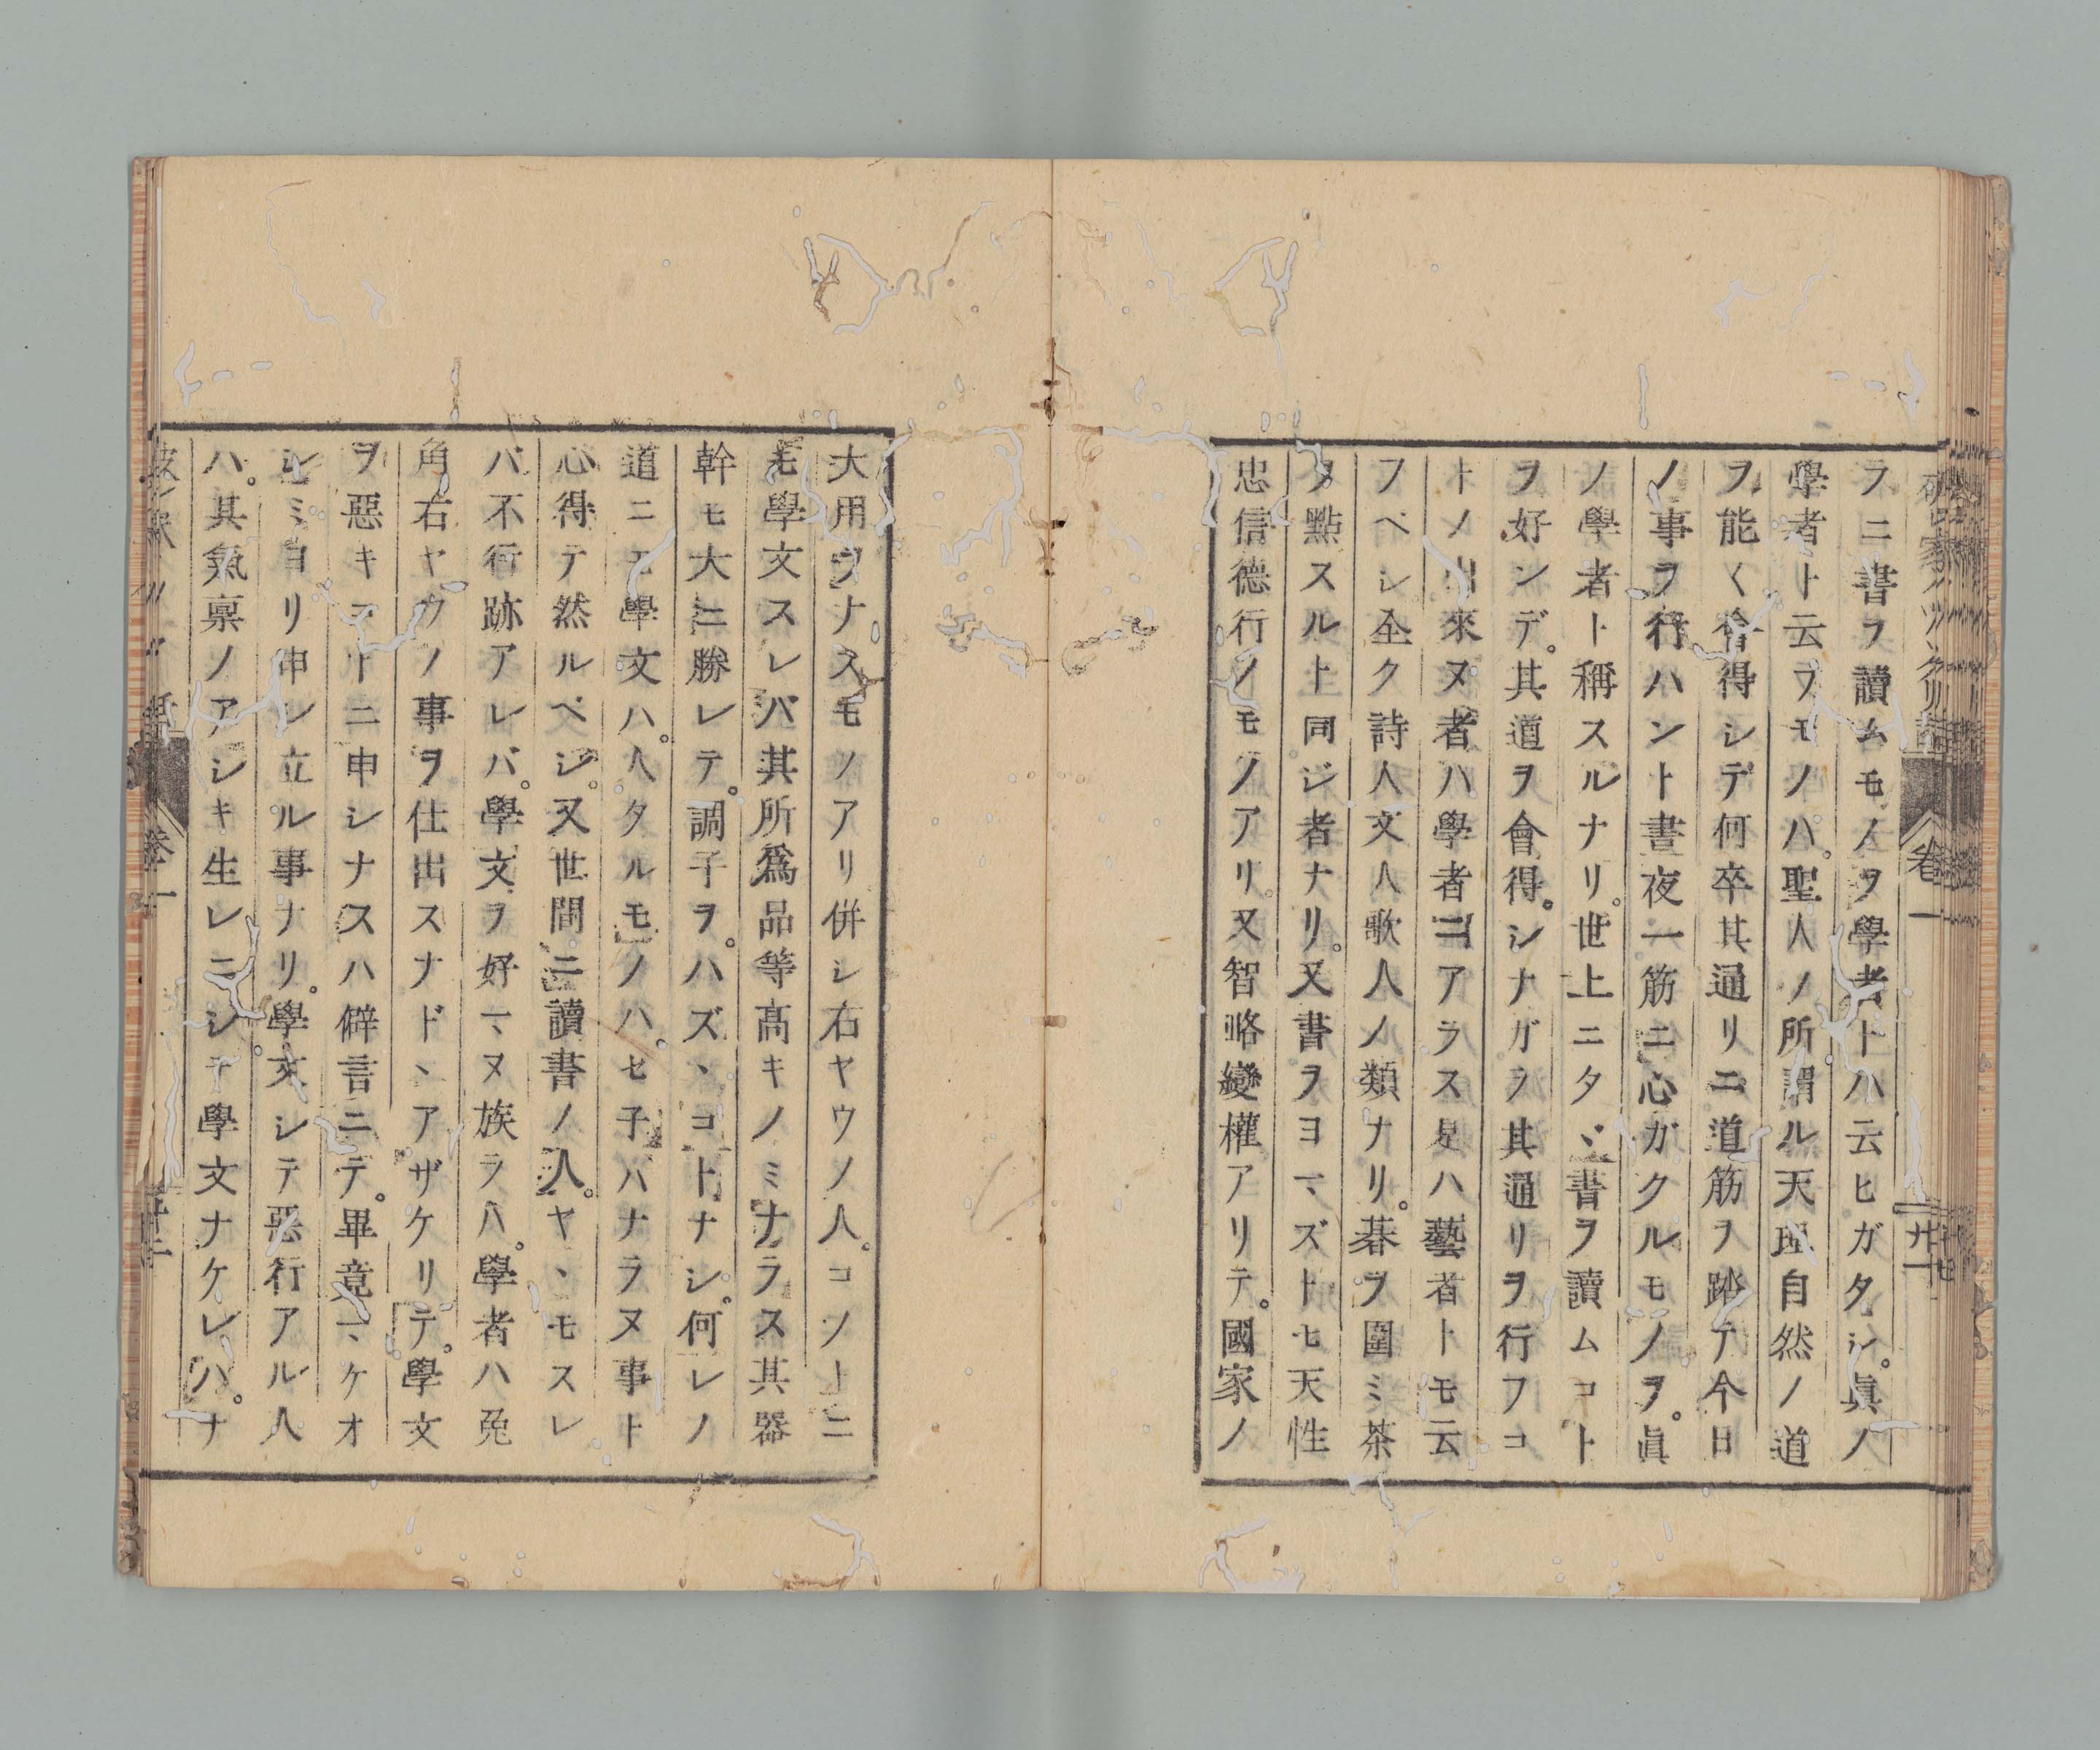 ラニ書ヲ讀ムモノヲ學者トハ云ヒガタシ。眞ノ
學者ト云フモノハ。聖人ノ所謂ル天理自然ノ道
ヲ能ク會得シデ何卒其通リニ道筋ヲ踏テ今日
ノ事ヲ行ハント晝夜一筋ニ心ガクルモノヲ。眞
ノ學者ト稱スルナリ。世上ニタヾ書ヲ讀ムコト
ヲ好ンデ。其道ヲ會得。シナガラ其通リヲ行フコ
トノ出來ヌ者ハ學者ニアラス是ハ藝者トモ云
フベシ全ク詩人文人歌人ノ類ナリ。碁ヲ圍ミ茶
ヲ點スルト同ジ者ナリ。又書ヲヨマズトモ天性
忠信德行ノモノアリ。又智略變權アリテ。國家ノ
大用ヲナスモノアリ併シ右ヤウノ人。コノトニ
モ學文スレバ其所爲品等髙キノミナラス其器
幹モ大ニ勝レテ。調子ヲ。ハズヽコトナシ。何レノ
道ニモ學文ハ。人タルモノハ。セ子バナラヌ事ト
心得テ然ルベシ。又世間ニ讀書ノ人。ヤヽモスレ
バ不行跡アレバ。學文ヲ好マヌ族ラハ。學者ハ兎
角右ヤウノ事ヲ仕出スナドヽアザケリテ。學文
ヲ惡キヿトニ申シナスハ僻言ニテ。畢竟マケオ
シミヨリ申シ立ル事ナリ。學文シテ惡行アル人
ハ。其氣稟ノアシキ生レニシテ學文ナケレハ。ナ
卷一
廿一